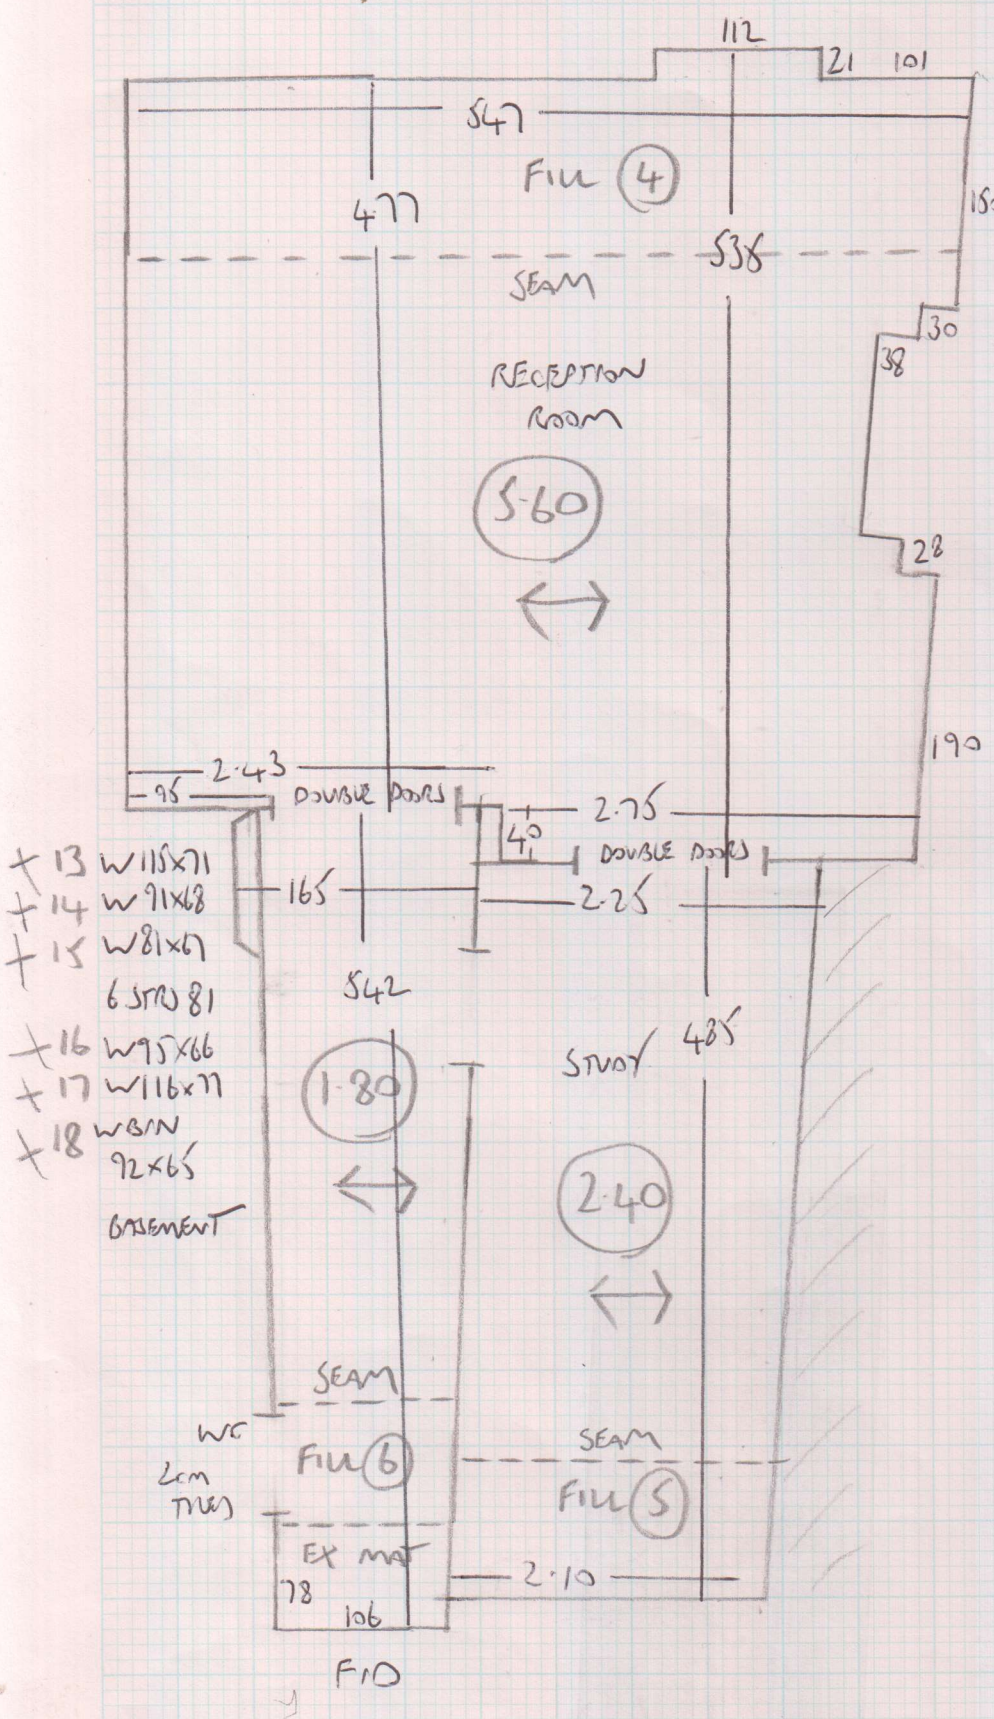 112
21 101
547
FILL 4
477
538
SEAM
30
38
RECEPTION
ROOM
5.60
28
190
2.43
95 DOUBLE DOORS
2.75
40
DOUBLE DOORS
+ 13 W115x71
+ 14 W91x68
+ 15 W81x67
6 STRS 81
+ 16 W95x66
+ 17 W116x77
+ 18 WBIN
92x65
BASEMENT
165
2.25
542
485
STUDY
1.80
2.40
SEAM
WC
FILL 6
2cm
TILES
SEAM
FILL 5
EX MAT
78
106
2.10
F/D